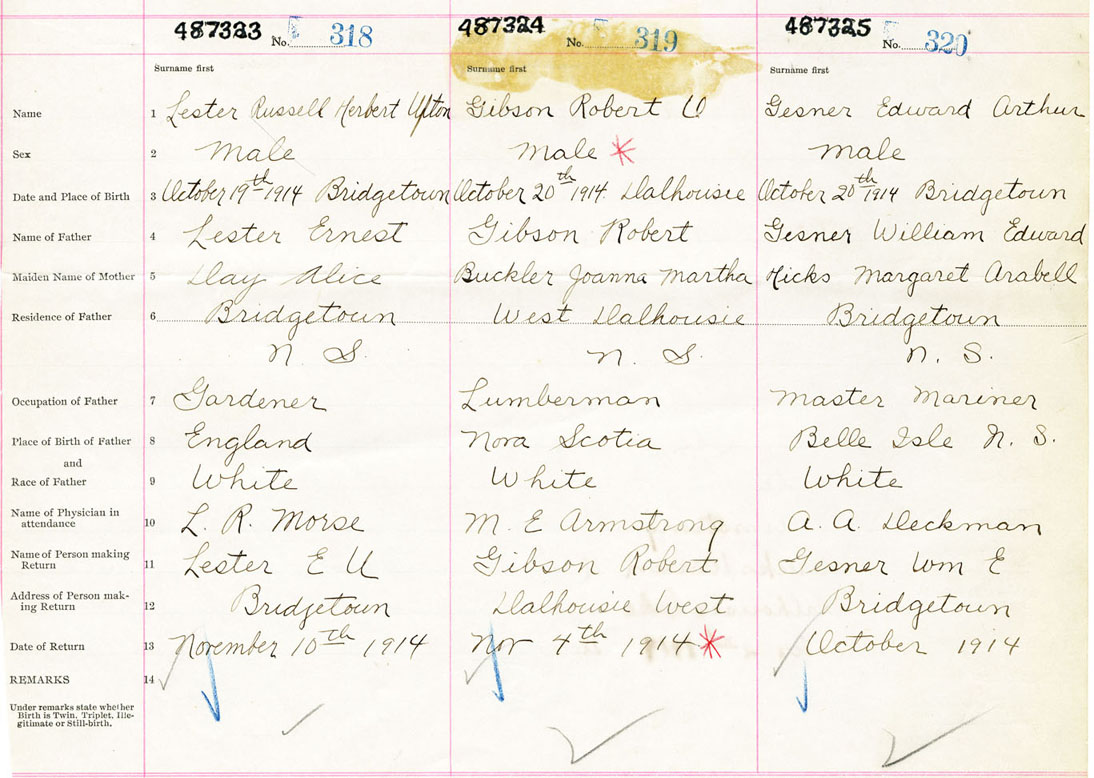 487323 No. 318 487324 No. 319 487325 No. 320
Surname first Surname first Surname first
Name 1 Lester Russell Herbert Upton Gibson Robert U Gesner Edward Arthur
Sex 2 Male Male * Male
Date and Place of Birth 3 October 19th 1914 Bridgetown October 20th 1914 Dalhousie October 20th 1914 Bridgetown
Name of Father 4 Lester Ernest Gibson Robert Gesner William Edward
Maiden Name of Mother 5 Day Alice Buckler Joanna Martha Hicks Margaret Arabell
Residence of Father 6 Bridgetown West Dalhousie Bridgetown
N S. N. S. N. S.
Occupation of Father 7 Gardener Lumberman Master Mariner
Place of Birth of Father 8 England Nova Scotia Belle Isle N. S.
and
Race of Father 9 White White White
Name of Physician in
attendance 10 L. R. Morse M. E Armstrong A. A. Deckman
Name of Person making
Return 11 Lester E U Gibson Robert Gesner Wm E
Address of Person mak-
ing Return 12 Bridgetown Dalhousie West Bridgetown
Date of Return 13 November 10th 1914 Nov 4th 1914 * October 1914
REMARKS 14
Under remarks state whether
Birth is Twin, Triplet, Ille-
gitimate or Still-birth.